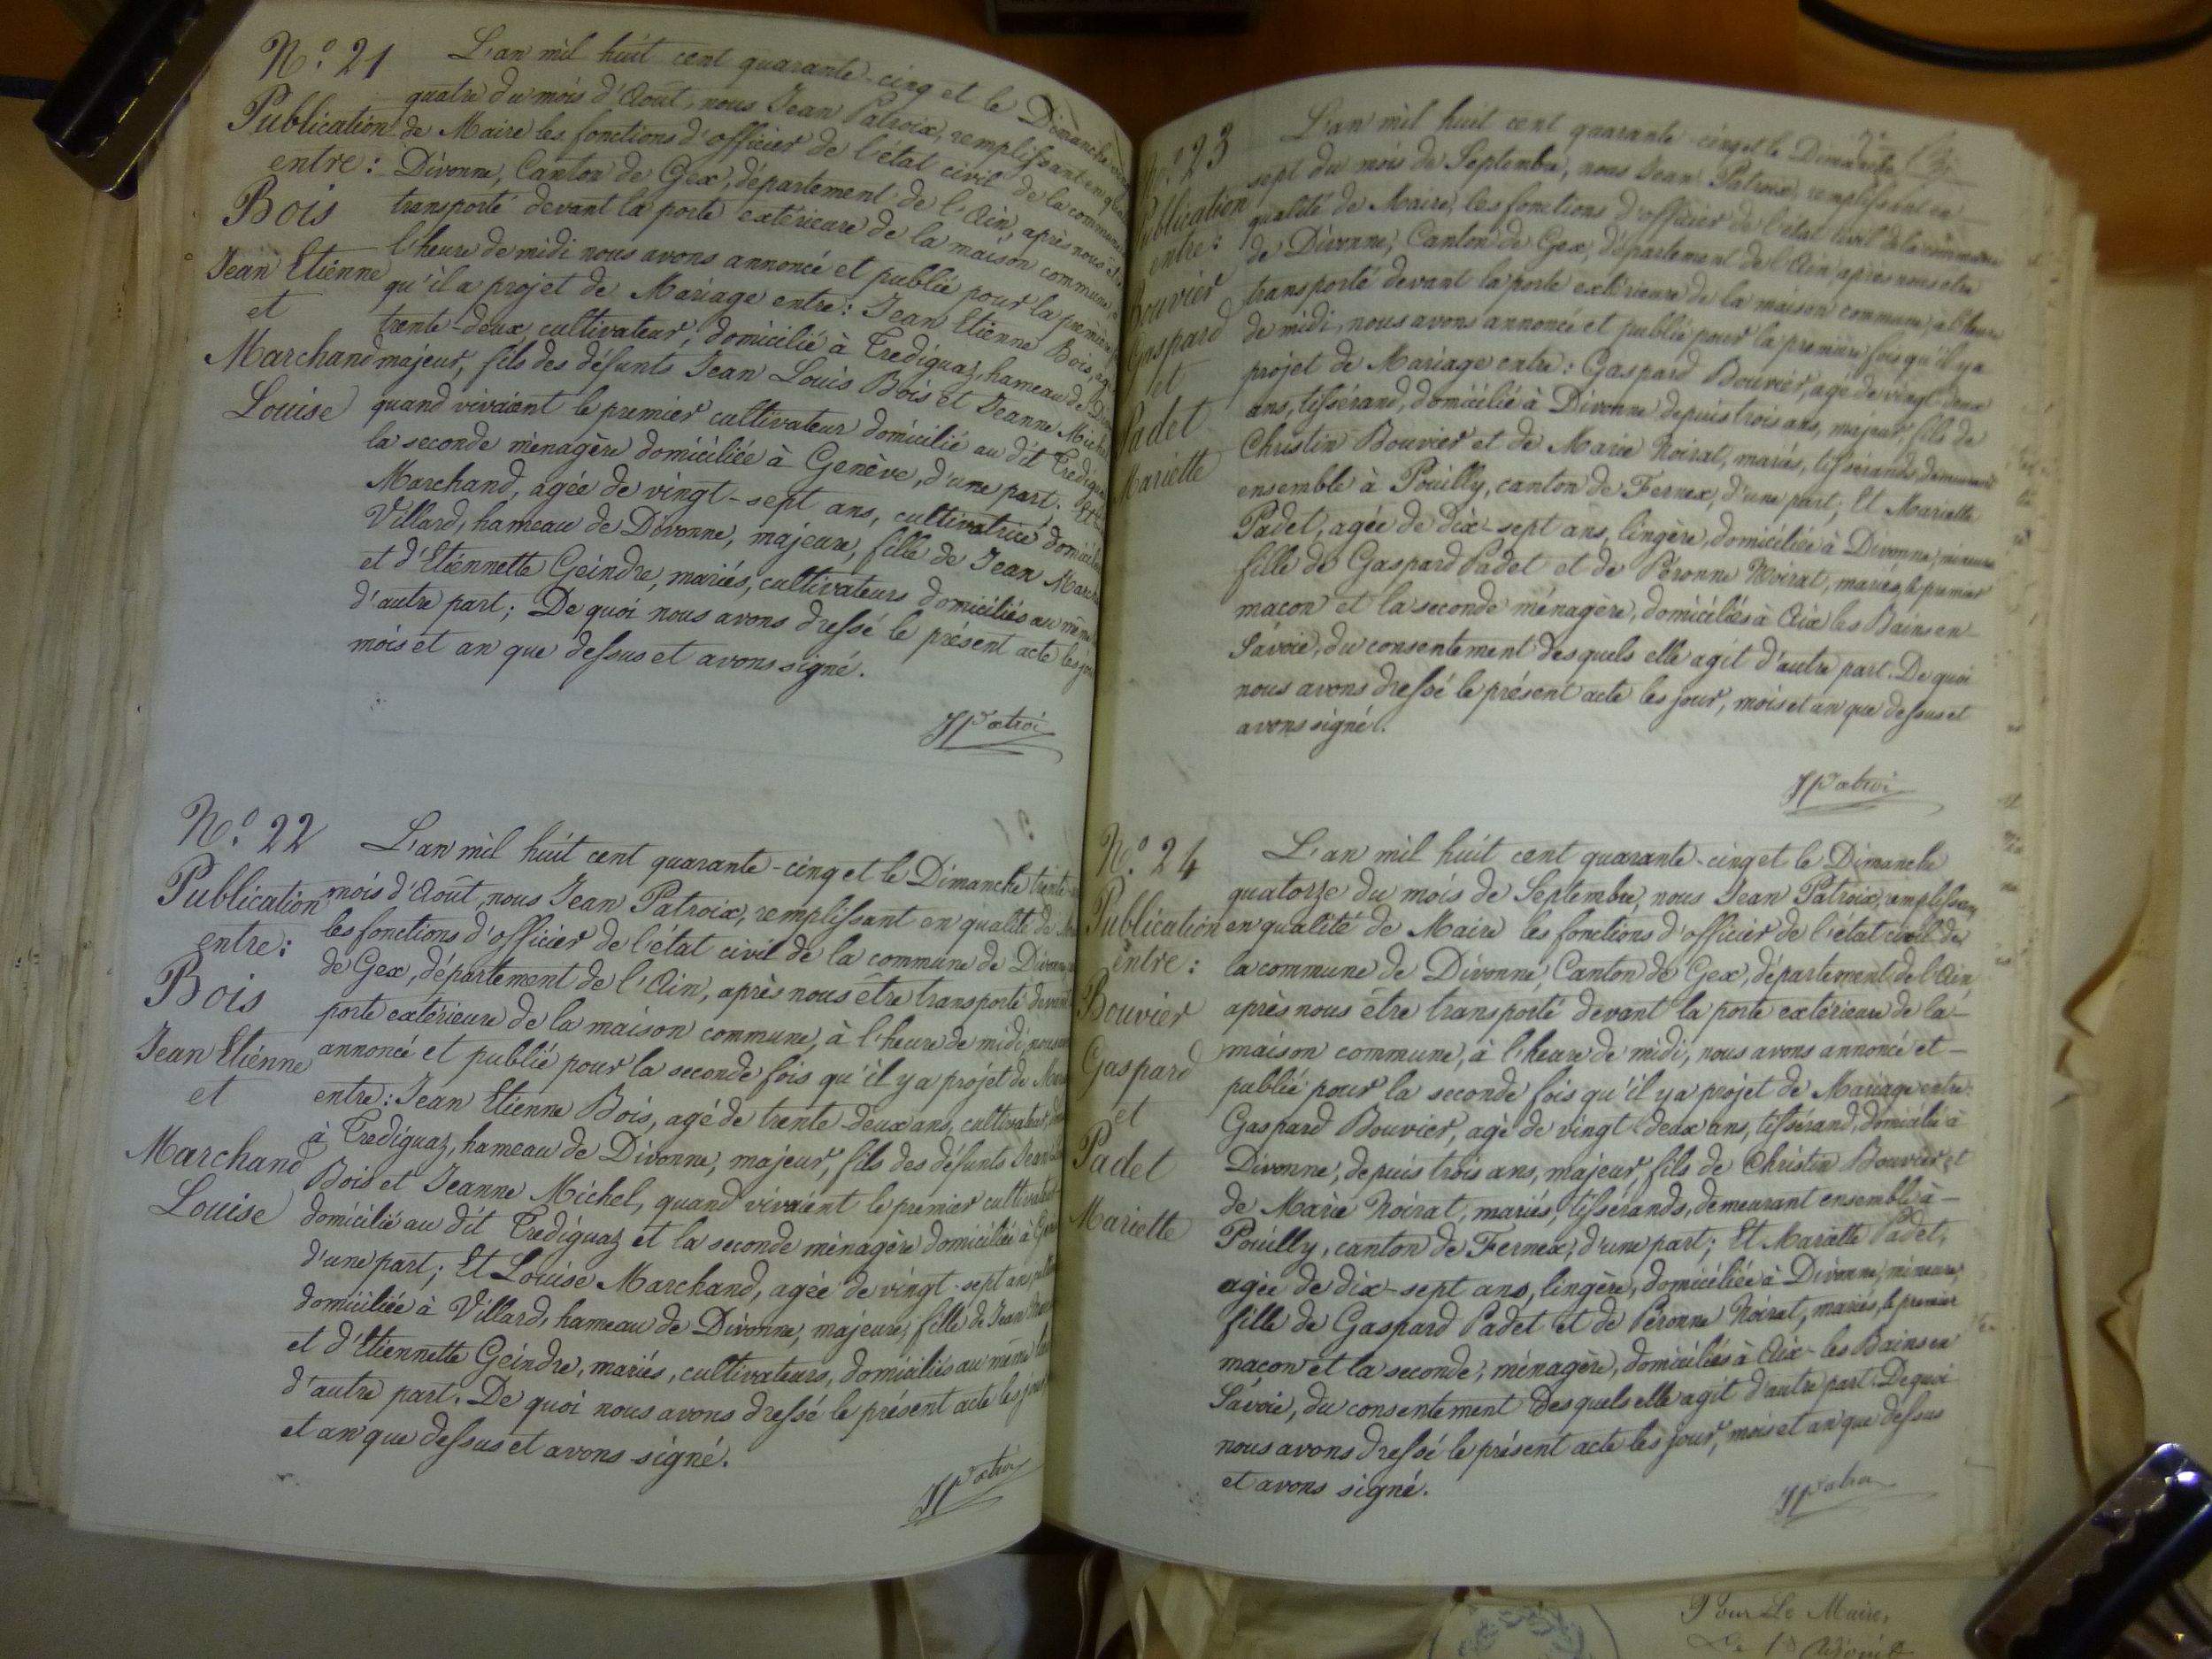 N.º 21
Publication
entre:
Bois
Jean Etienne
et
Marchand
Louise
L'an mil huit cent quarante-cinq et le Dimanche
quatre du mois d'Août, nous Jean Patroix, remplissant en
de Maire les fonctions d'officier de l'état civil de la commune
Divonne, Canton de Gex, département de l'Ain, après nous
transporté devant la porte extérieure de la maison commune,
l'heure de midi nous avons annoncé et publié pour la première
qu'il a projet de Mariage entre: Jean Etienne Bois,
trente-deux, cultivateur, domicilié à Trediguaz, hameau de
majeur, fils des défunts Jean Louis Bois et Jeanne
quand vivaient le premier cultivateur domicilié au dit
la seconde ménagère domiciliée à Genève, d'une part;
Marchand, agée de vingt-sept ans, cultivatrice,
Villard, hameau de Divonne, majeure, fille de Jean
et d'Etiennette Geindre, mariés, cultivateurs domiciliés au même
d'autre part; De quoi nous avons dressé le présent acte les
mois et an que dessus et avons signé.
JPatroi
N.º 22
Publication
entre:
Bois
Jean Etienne
et
Marchand
Louise
L'an mil huit cent quarante-cinq et le Dimanche
mois d'Août, nous Jean Patroix, remplissant en qualité de
les fonctions d'officier de l'état civil de la commune de
de Gex, département de l'Ain, après nous être transporté
porte extérieure de la maison commune, à l'heure de midi,
annoncé et publié pour la seconde fois qu'il y a projet de
entre: Jean Etienne Bois, agé de trente-deux ans, cultivateur,
à Trediguaz, hameau de Divonne, majeur, fils des défunts Jean
Bois et Jeanne Michel, quand vivaient le premier
domicilié au dit Trediguaz et la seconde ménagère domiciliée à
d'une part; Et Louise Marchand, agée de vingt-sept ans,
domiciliée à Villard, hameau de Divonne, majeure, fille de Jean
et d'Etiennette Geindre, mariés, cultivateurs, domiciliés au même
d'autre part. De quoi nous avons dressé le présent acte les
et an que dessus et avons signé.
N.º 23
Publication
entre:
Bouvier
Gaspard
et
Padet
Mariette
L'an mil huit cent quarante-cinq et le Dimanche
sept du mois de Septembre, nous Jean Patroix, remplissant en
qualité de Maire, les fonctions d'officier de l'état civil de la commune
de Divonne, Canton de Gex, département de l'Ain, après nous être
transporté devant la porte extérieure de la maison commune, à l'heure
de midi, nous avons annoncé et publié pour la première fois qu'il y a
projet de Mariage entre: Gaspard Bouvier, agé de vingt-deux
ans, tissérand, domicilié à Divonne depuis trois ans, majeur, fils de
Christin Bouvier et de Marie Noirat, mariés, tissérands, demeurant
ensemble à Pouilly, canton de Fernex, d'une part; Et Mariette
Padet, agée de dix-sept ans, lingère, domiciliée à Divonne, mineure
fille de Gaspard Padet et de Péronne Noirat, mariés, le premier
maçon et la seconde ménagère, domiciliés à Aix les Bains en
Savoie, du consentement desquels elle agit d'autre part. De quoi
nous avons dressé le présent acte les jour, mois et an que dessus et
avons signé.
JPatroi
N.º 24
Publication
entre:
Bouvier
Gaspard
et
Padet
Mariette
L'an mil huit cent quarante-cinq et le Dimanche
quatorze du mois de Septembre, nous Jean Patroix, remplissant
en qualité de Maire les fonctions d'officier de l'état civil de
la commune de Divonne, Canton de Gex, département de l'Ain,
après nous être transporté devant la porte extérieure de la
maison commune, à l'heure de midi, nous avons annoncé et
publié pour la seconde fois qu'il y a projet de Mariage entre:
Gaspard Bouvier, agé de vingt-deux ans, tissérand, domicilié à
Divonne, depuis trois ans, majeur, fils de Christin Bouvier et
de Marie Noirat, mariés, tissérands, demeurant ensemble à
Pouilly, canton de Fernex, d'une part; Et Mariette Padet,
agée de dix-sept ans, lingère, domiciliée à Divonne, mineure,
fille de Gaspard Padet et de Péronne Noirat, mariés, le premier
maçon et la seconde, ménagère, domiciliés à Aix-les Bains en
Savoie, du consentement desquels elle agit d'autre part. De quoi
nous avons dressé le présent acte les jour, mois et an que dessus
et avons signé.
Pour Le Maire,